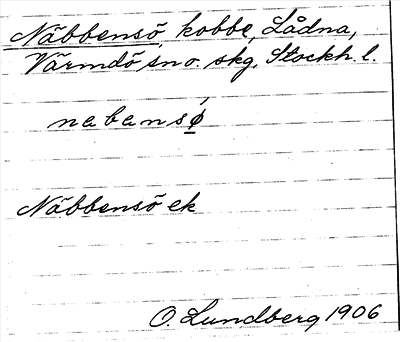 Näbbensö, kobbe, Lådna,
Värmdö sn o. skg, Stockh. l.
nabensǿ̲
Näbbensö ek
O. Lundberg 1906